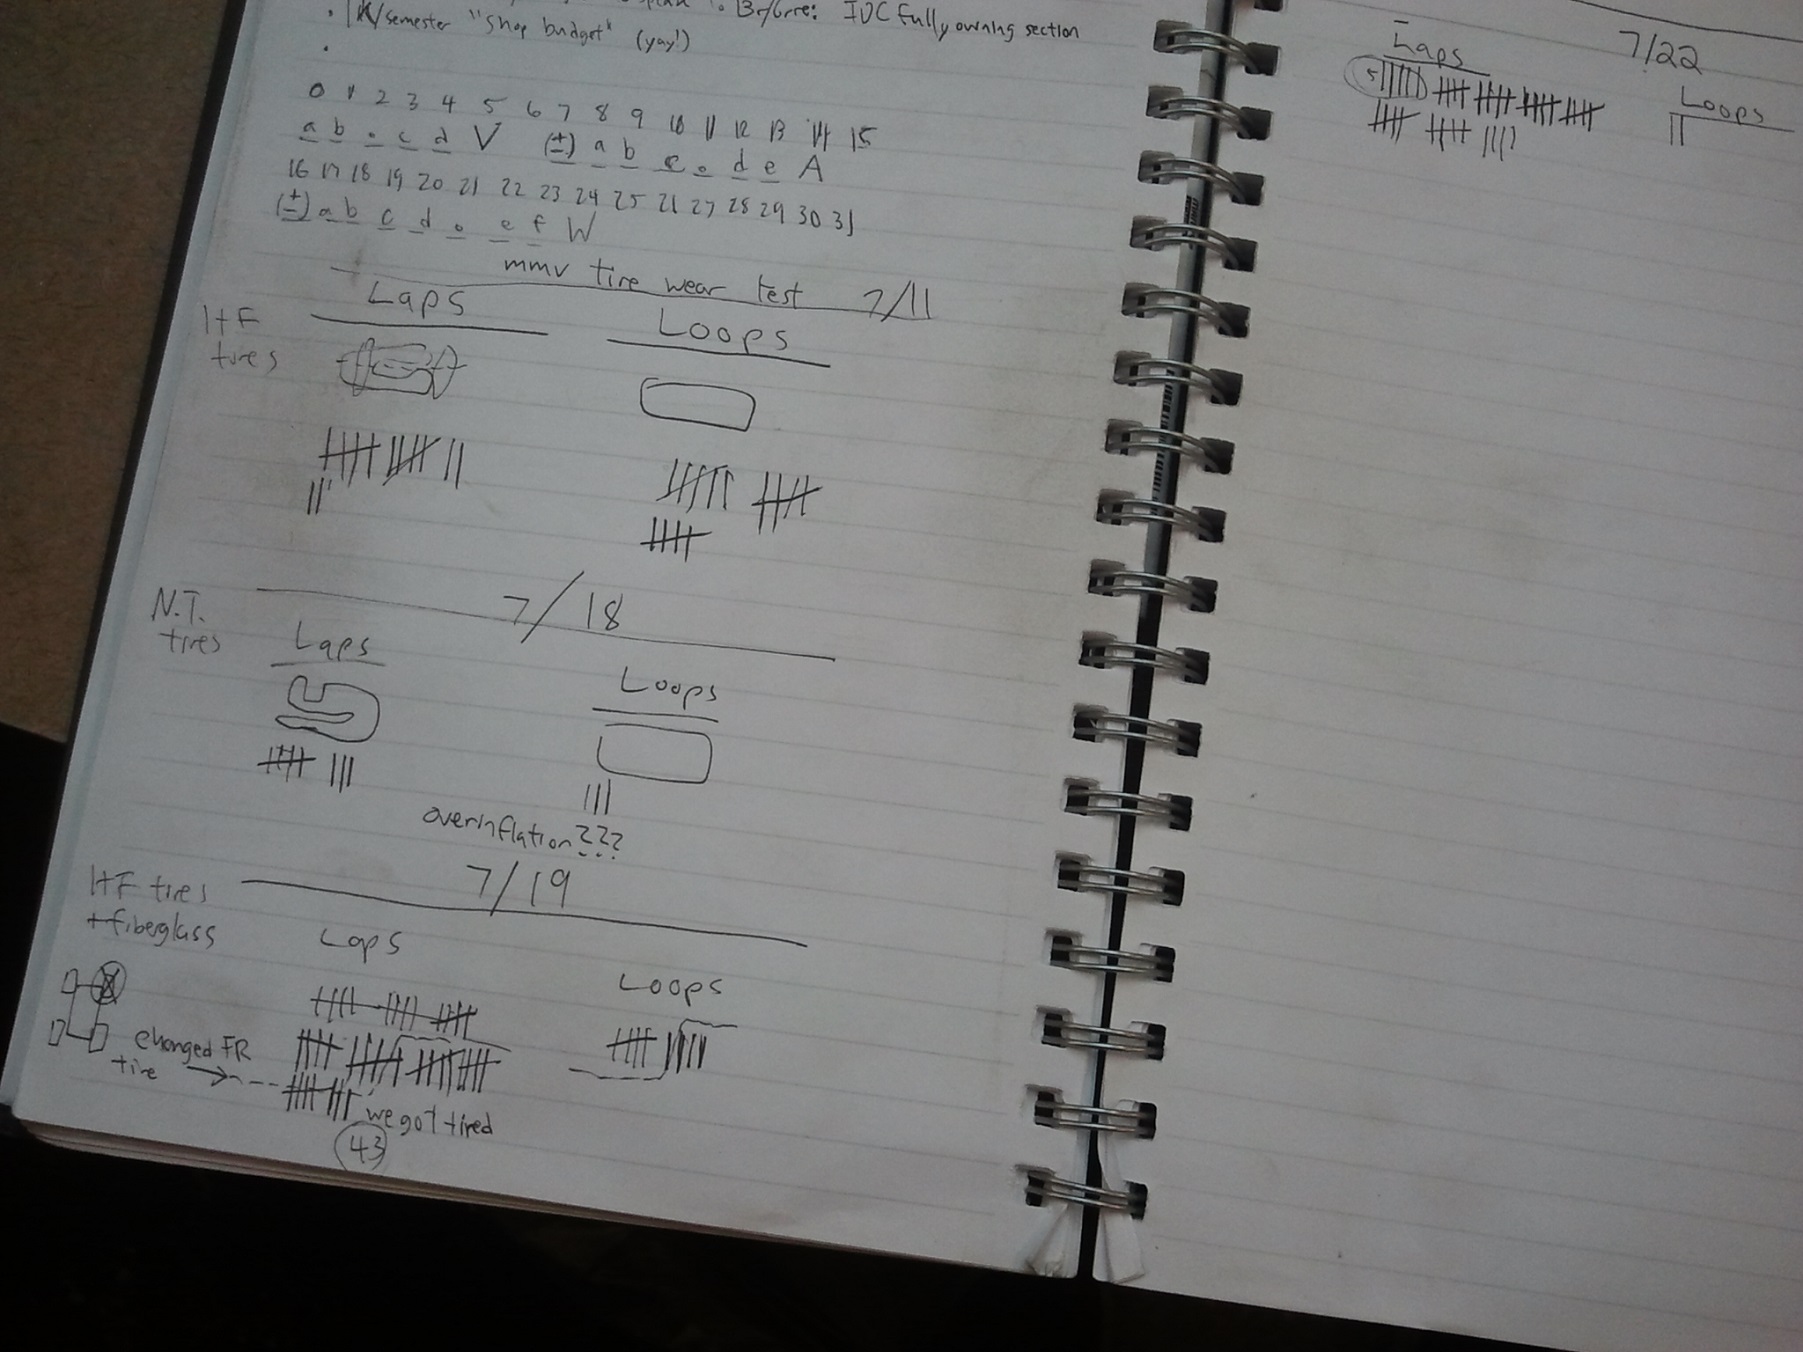 Before: IDC fully owning section
• 1K/semester "shop budget" (yay!)
•
0 1 2 3 4 5 6 7 8 9 10 11 12 13 14 15
a b . c d V (±) a b c . d e A
16 17 18 19 20 21 22 23 24 25 21 27 28 29 30 31
(±) a b c d . e f W
mmv tire wear test 7/11
HF
tires
Laps
Loops
7/18
N.T.
tires
Laps
Loops
overinflation???
7/19
HF tires
+fiberglass
Laps
Loops
changed FR
tire
we got tired
43
7/22
Laps
5
Loops